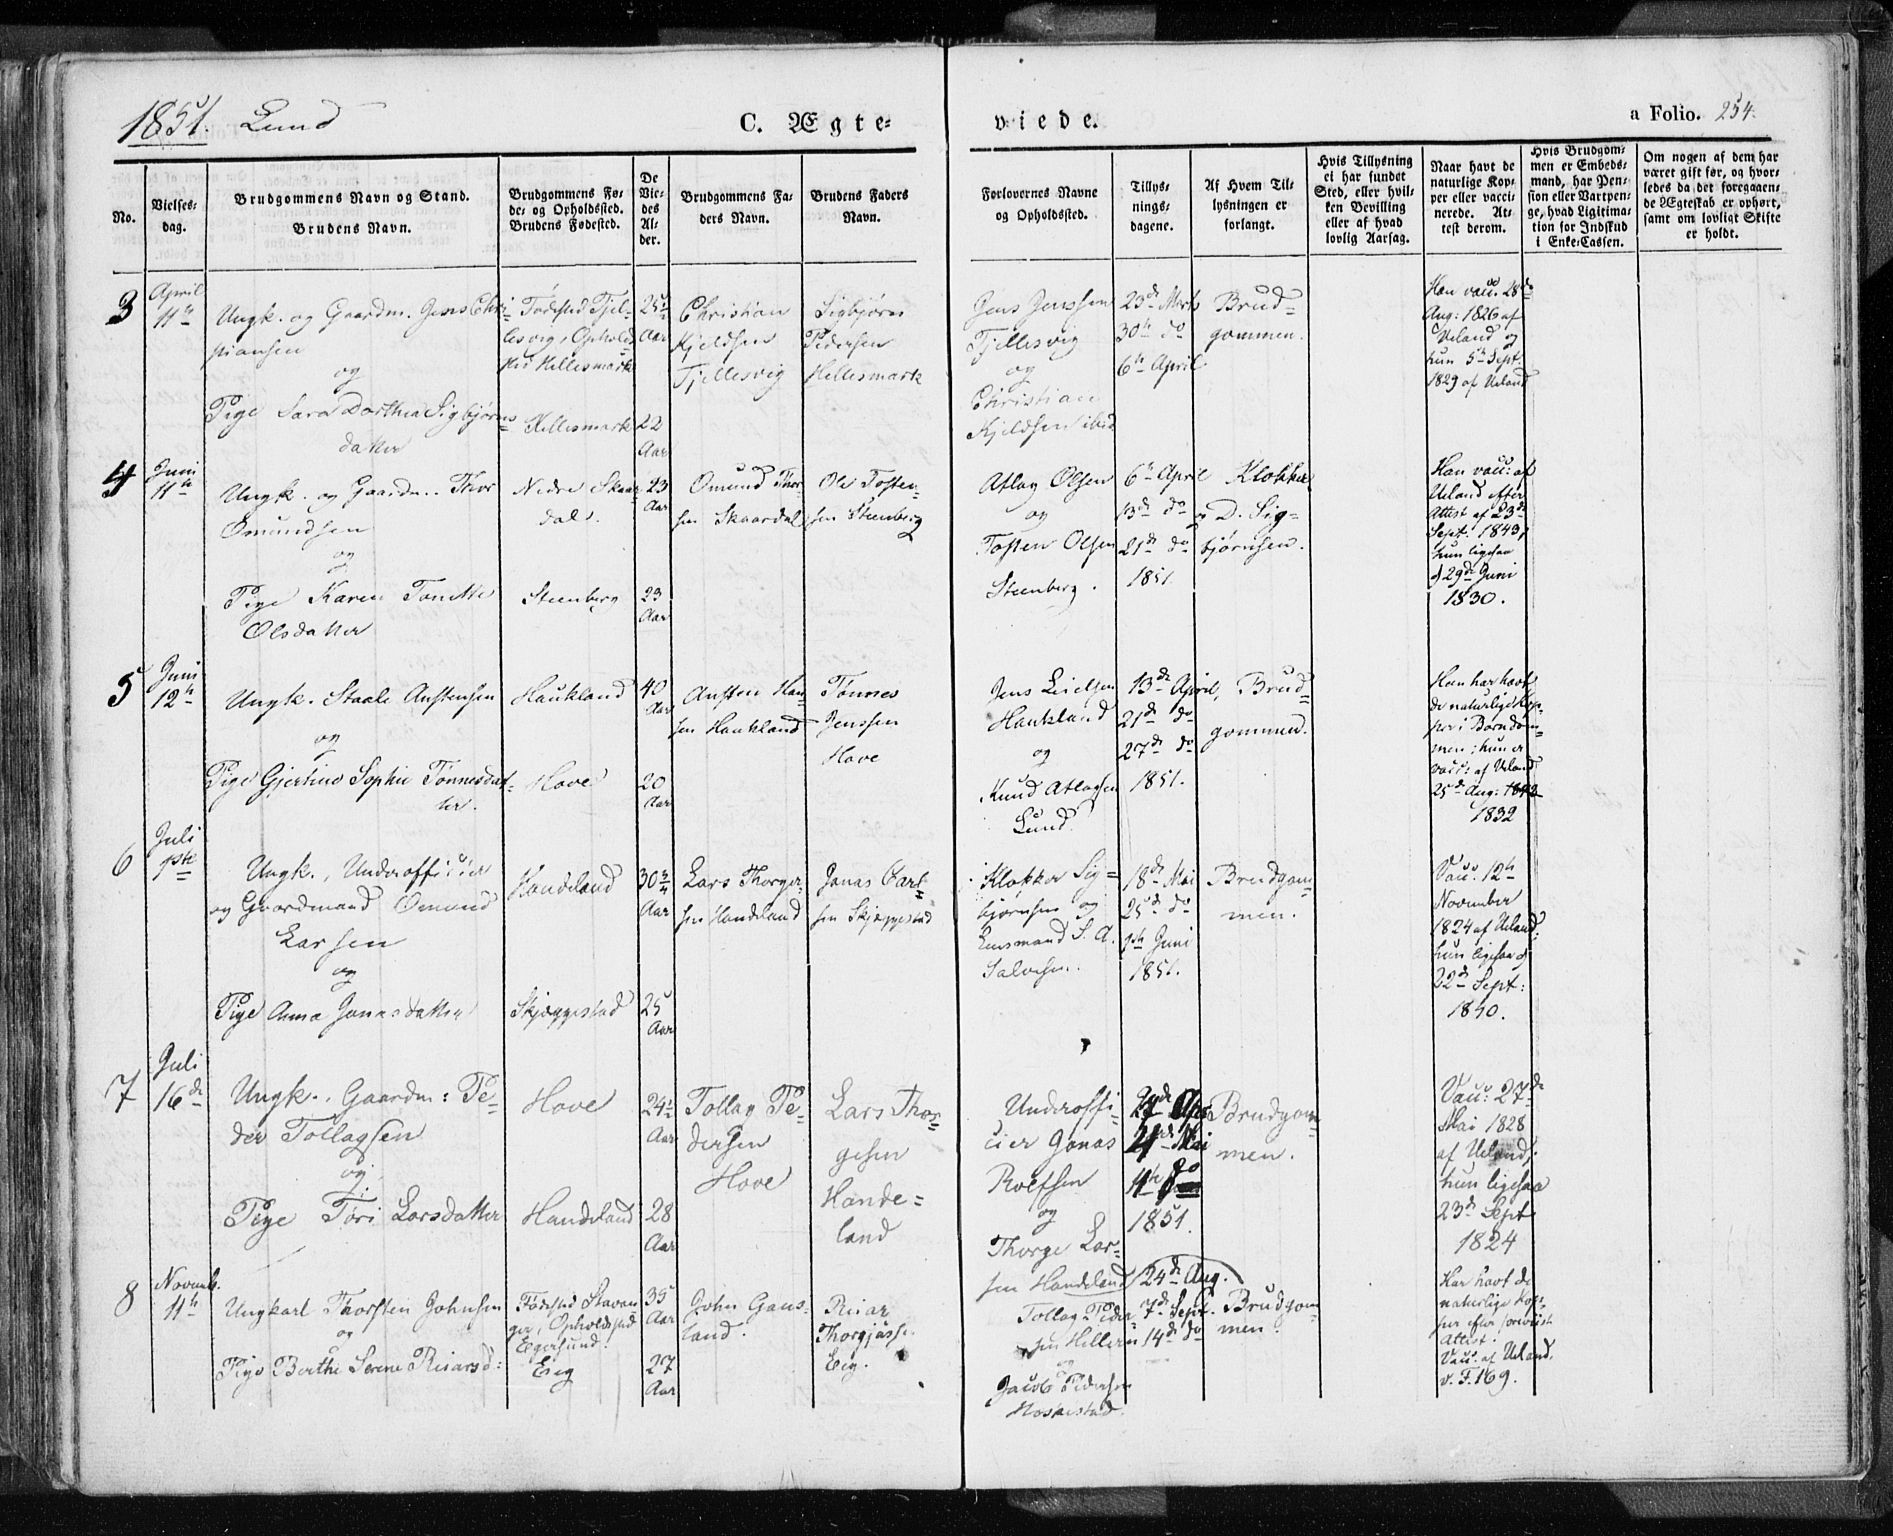 1851. Lund
C. Ægte-
viede.
a Folio. 254.
No.
Vielses-
dag.
Brudgommens Navn og Stand.
Brudens Navn.
Brudgommens Fø-
de- og Opholdssted.
Brudens Fødested.
De
Vie-
des
Al-
der.
Brudgommens Fa-
ders Navn.
Brudens Faders
Navn.
Forlovernes Navne
og Opholdssted.
Tillys-
nings-
dagene.
Af Hvem Til-
lysningen er
forlangt.
Hvis Tillysning
ei har fundet
Sted, eller hvil-
ken Bevilling
eller af hvad
lovlig Aarsag.
Naar havt de
naturlige Kop-
per eller vacci-
nerede. At-
test derom.
Hvis Brudgom-
men er Embeds-
mand, har Pen-
sion eller Vartpen-
ge, hvad Ligitima-
tion for Indskud
i Enke-Cassen.
Om nogen af dem har
været gift før, og hvor-
ledes da det foregaaen-
de Ægteskab er ophørt,
samt om lovligt Skifte
er holdt.
3
April
11te
Ungk. og Gaardm. Jens Chri-
stiansen
og
Pige Sara Dorthea Sigbjørns-
datter
Fødested Fjel-
lesvig, Ophold-
sted Hellesmark
Hellesmark
25½
Aar
22
Aar
Christian
Kjeldsen
Fjellesvig
Sigbjørn
Pedersen
Hellesmark
Jens Jenssen
Fjellesvig
og
Christian
Kjeldsen ibid
23de Marts
30te do
6te April
Brud-
gommen.
Han vacc. 28de
Aug: 1826 af
Ueland og
hun 5te Sept.
1829 af Ueland
4
Juni
11te
Ungk. og Gaardm. Thor
Omundsen
og
Pige Karen Tonette
Olsdatter
Nedre Skaar-
dal.
Steenberg
23
Aar
23
Aar
Omund Thor-
sen Skaardal
Ole Tosten-
sen Steenberg
Atlag Olsen
og
Tosten Olsen
Steenberg.
6te April
13de do
21de do
1851
Klokker
D. Sig-
bjørnsen.
Han vacc: af
Ueland efter
Attest af 23de
Sept: 1843,
hun ligesaa
d 29de Juni
1830.
5
Juni
12te
Ungk. Staale Austensen
og
Pige Gjertine Sophie Tønnesdat-
ter.
Haukland
Hove
40
Aar
20
Aar
Austen Han-
sen Haukland
Tønnes
Jenssen
Hove
Jens Leielsen
Haukland
og
Knud Atlagsen
Lund.
13de April,
21de do
27de do
1851.
Brud-
gommen.
Han har havt
de naturlige Kop-
per i Barndom-
men; hun er
vacc: af Ueland
25de Aug: 1842
1832
6
Juli
1ste
Ungk., Underofficier
og Gaardmand Omund
Larsen
og
Pige Anna Jonasdatter
Handeland
Skjæggestad
30¾
Aar
25
Aar
Lars Thorger-
sen Handeland
Jonas Carl-
sen Skjæggestad
Klokker Sig-
bjørnsen og
Lensmand S. A.
Salvesen.
18de Mai
25de do
1ste Juni
1851.
Brudgom-
men.
Vacc. 12te
November
1824 af Ueland;
hun ligesaa d
22de Sept:
1840.
7
Juli
16de
Ungk., Gaardm: Pe-
der Tollagsen
og
Pige Tøri Larsdatter
Hove
Handeland
24½
Aar
28
Aar
Tollag Pe-
dersen
Hove
Lars Thor-
gesen
Hande-
land
Underoffi-
cier Jonas
Rolfsen
og
Thorge Lar-
sen Handeland
27de Apr
4de Mai
11te do
1851.
Brudgom-
men.
Vacc: 27de
Mai 1828
af Ueland,
hun ligesaa
23de Sept
1824
8
Novemb.
11te
Ungkarl Thorsten Johnsen
og
Pige Berthe Serene Reiarsd:
Fødested Stavan-
ger, Opholdssted
Egersund.
Eeg
35
Aar
27
Aar
John Gaus-
land.
Reiar
Eeg.
Tollag Peder-
sen Helleren
og
Jacob Pedersen
24de Aug.
7de Sept.
14de do
Brudgom-
men.
Har havt de
naturlige Kop-
per efter forevist
Attest.
Vacc. af Ueland.
v. F. 169.